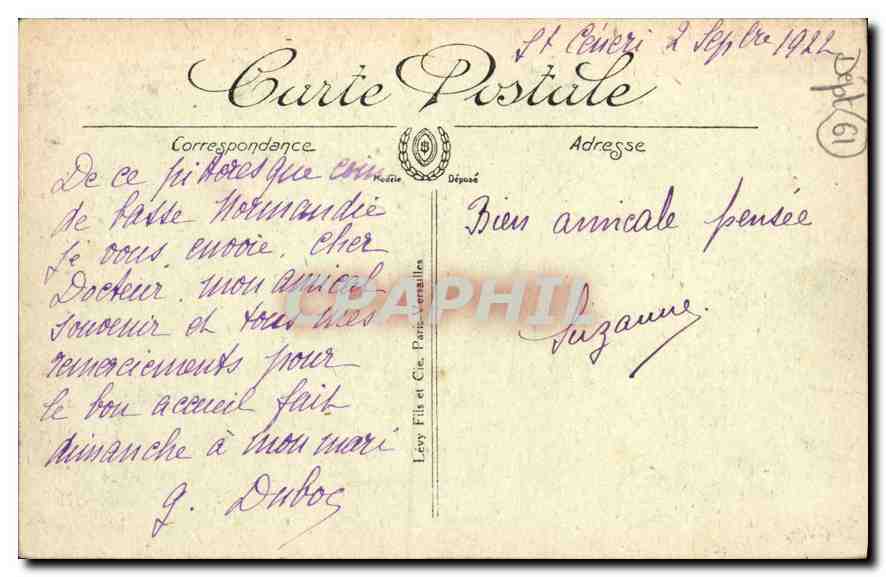 St Céneri 2 Septbre 1922
Dépt 61
Carte Postale
Correspondance
Adresse
Modèle Déposé
De ce pittoresque coin
de basse Normandie
je vous envoie, cher
Docteur, mon amical
souvenir et tous mes
remerciements pour
le bon accueil fait
dimanche à mon mari
G. Duboc
Bien amicale pensée
Suzanne
Lévy Fils et Cie, Paris-Versailles
CPAPHIL